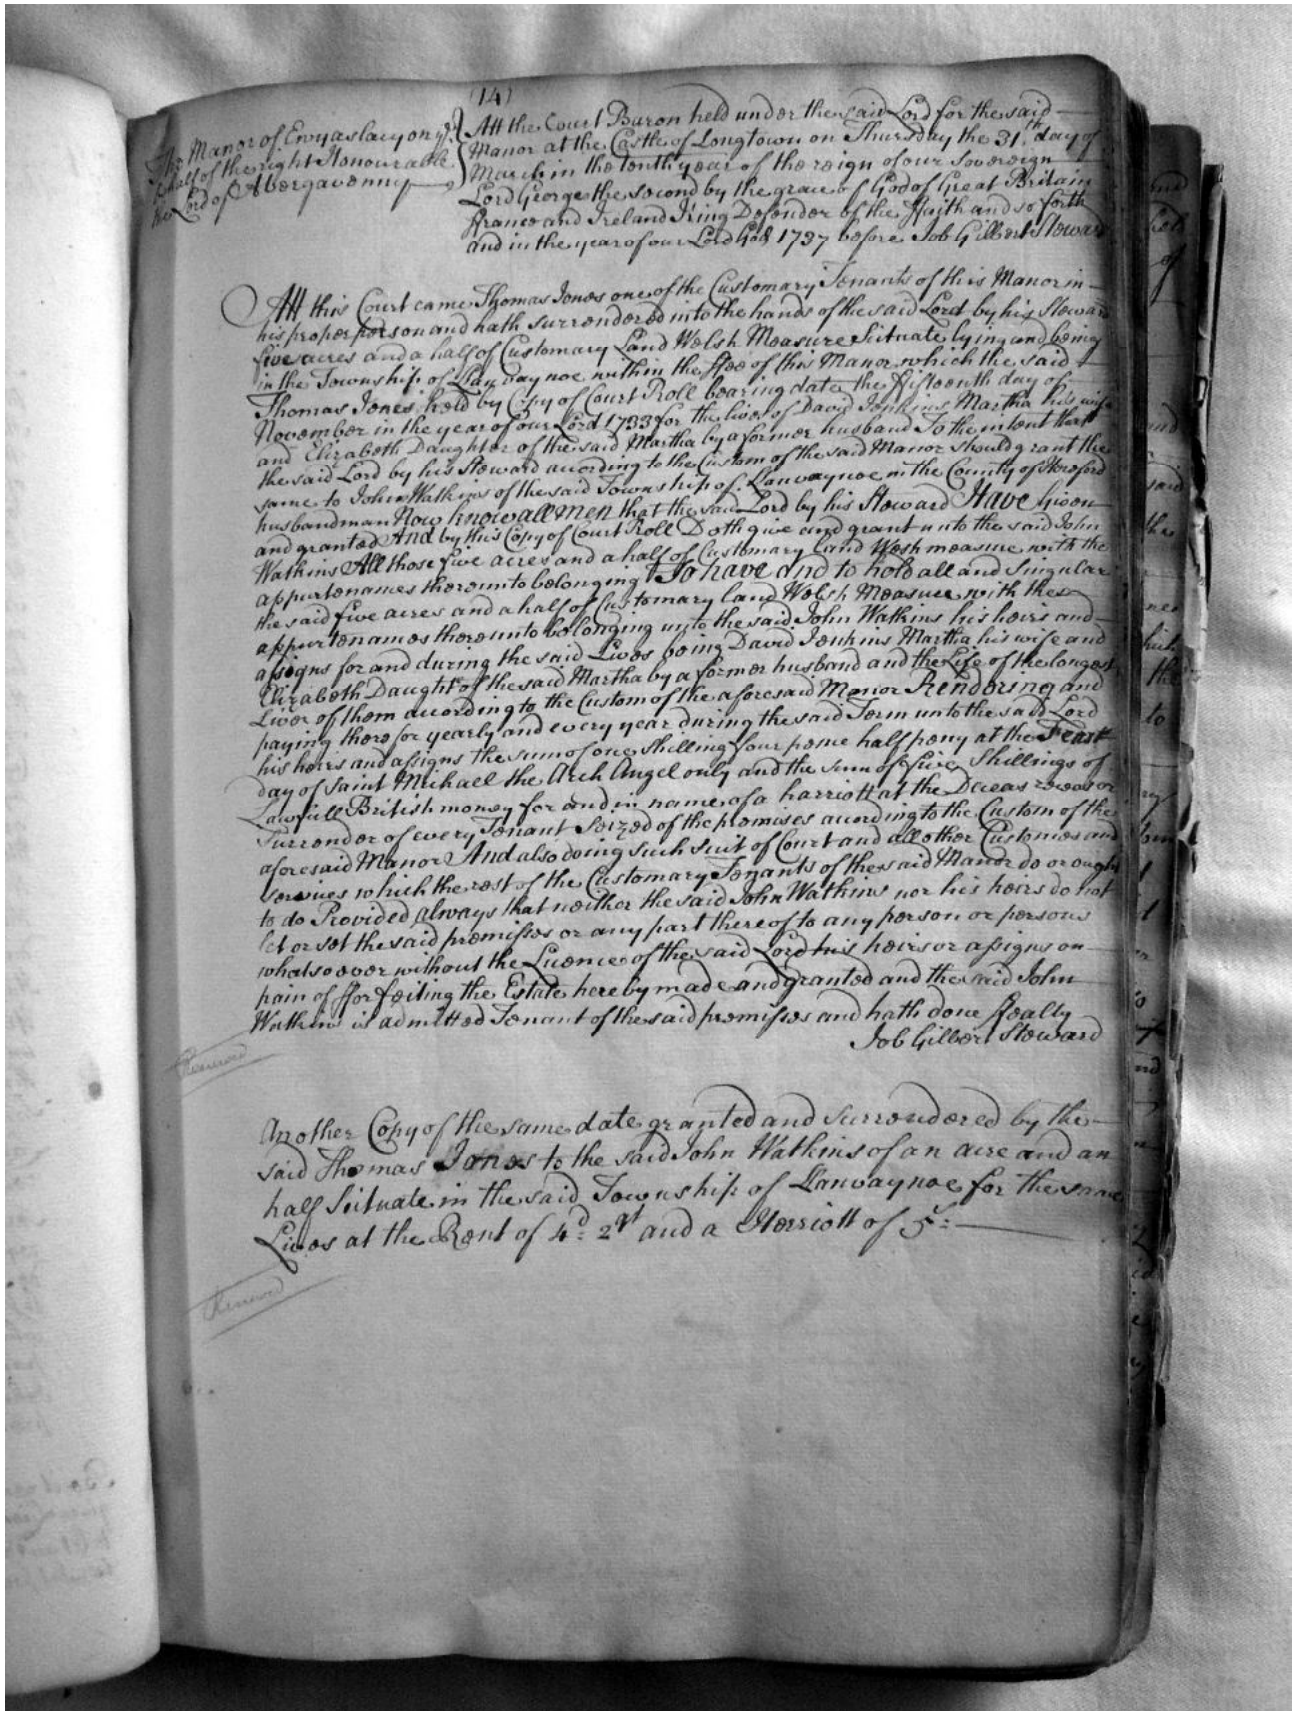 (14)
The Manor of Ewyaslacy on ye
behalf of the right Honourable
the Lord of Abergavenny
Att the Court Baron held under the said Lord for the said
Manor at the Castle of Longtown on Thursday the 31th day of
March in the tenth year of the reign of our Sovereign
Lord George the second by the grace of God of Great Britain
ffrance and Ireland King Defender of the ffaith and so forth
and in the year of our Lord God 1737 before Job Gilbert Steward
Att this Court came Thomas Jones one of the Customary Tenants of this Manor in
his proper person and hath surrendered into the hands of the said Lord by his Steward
five acres and a half of Customary Land Welsh Measure Scituate lying and being
in the Township of Llanvaynoe within the ffee of this Manor which the said
Thomas Jones held by Copy of Court Roll bearing date the ffifteenth day of
November in the year of our Lord 1733 for the lives of David Jenkins Martha his wife
and Elizabeth Daughter of the said Martha by a former husband To the intent that
the said Lord by his Steward acording to the Custom of the said Manor should grant the
same to John Watkins of the said Township of Llanvaynoe in the County of Hereford
husbandman Now know all men that the said Lord by his Steward Have given
and granted And by this Copy of Court Roll Doth give and grant unto the said John
Watkins All those five acres and a half of Customary land Welsh measure with the
appurtenances thereunto belonging To have and to hold all and Singular
the said five acres and a half of Customary land Welsh Measure with the
appurtenances thereunto belonging unto the said John Watkins his heirs and
assigns for and during the said Lives being David Jenkins Martha his wife and
Elizabeth Daughtr of the said Martha by a former husband and the Life of the longest
Liver of them acording to the Custom of the aforesaid Manor Rendering and
paying therefor yearly and every year during the said Term unto the said Lord
his heirs and assigns the sum of one shilling four pence half peny at the Feast
day of Saint Michael the Arch Angel only and the sum of five Shillings of
Lawfull British money for and in name of a harriott at the Decease or
Surrender of every Tenant Seized of the premises acording to the Custom of the
aforesaid Manor And also doing such suit of Court and all other Customes and
services which the rest of the Customary Tenants of the said Manor do or ought
to do Provided always that neither the said John Watkins nor his heirs do not
let or set the said premisses or any part thereof to any person or persons
whatsoever without the Licence of the said Lord his heirs or assigns on
pain of fforfeiting the Estate hereby made and granted and the said John
Watkins is admitted Tenant of the said premisses and hath done ffealty
Job Gilbert Steward
Another Copy of the same date granted and surrendered by the
said Thomas Jones to the said John Watkins of an acre and an
half Scituate in the said Township of Llanvaynoe for the same
Lives at the Rent of 4d: 2qt and a Herriott of 5s: